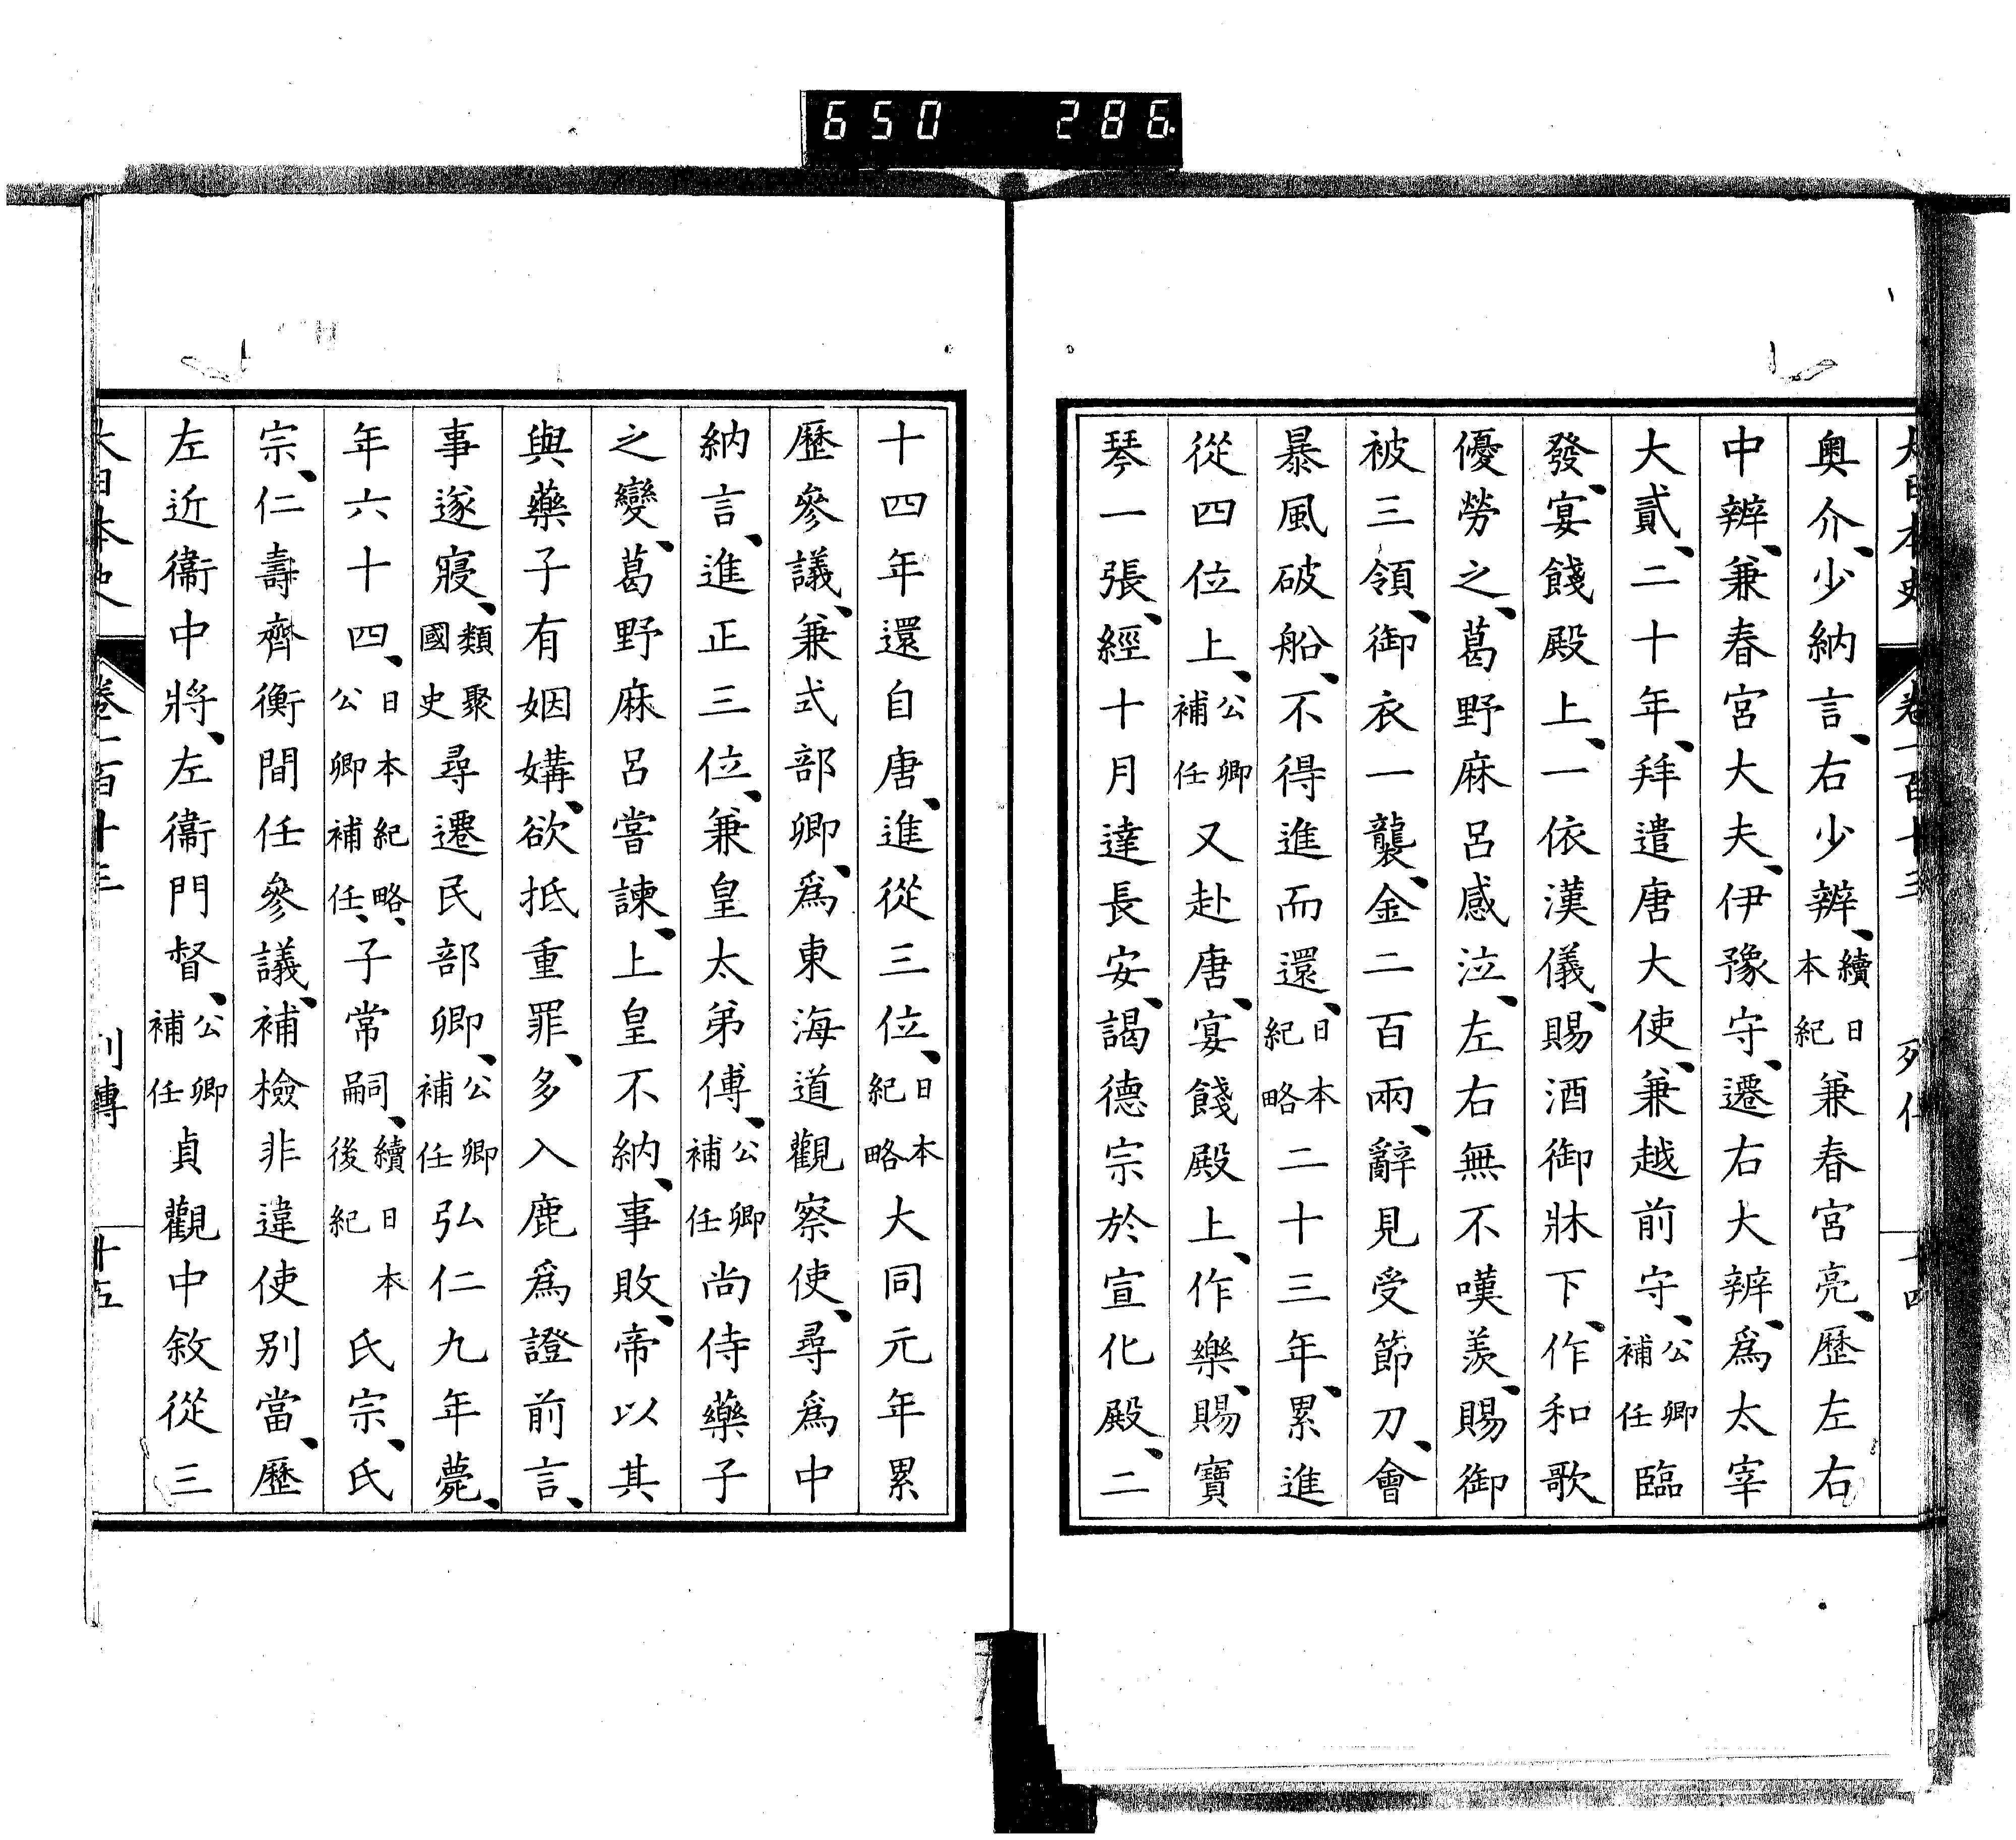 650 286
大日本史 卷一百十三 列傳 十四
奧介、少納言、右少辨、續日本紀兼春宮亮、歷左右
中辨、兼春宮大夫、伊豫守、遷右大辨、爲太宰
大貳、二十年、拜遣唐大使、兼越前守、公卿補任臨
發、宴餞殿上、一依漢儀、賜酒御牀下、作和歌
優勞之、葛野麻呂感泣、左右無不嘆羨、賜御
被三領、御衣一襲、金二百兩、辭見受節刀、會
暴風破船、不得進而還、日本紀略二十三年、累進
從四位上、公卿補任又赴唐、宴餞殿上、作樂、賜寶
琴一張、經十月達長安、謁德宗於宣化殿、二
十四年還自唐、進從三位、日本紀略大同元年累
歷參議、兼式部卿、爲東海道觀察使、尋爲中
納言、進正三位、兼皇太弟傅、公卿補任尚侍藥子
之變、葛野麻呂嘗諫、上皇不納、事敗、帝以其
與藥子有姻媾、欲抵重罪、多入鹿爲證前言、
事遂寢、類聚國史尋遷民部卿、公卿補任弘仁九年薨、
年六十四、日本紀略、公卿補任、子常嗣、續日本後紀氏宗、氏
宗、仁壽齊衡間任參議、補檢非違使別當、歷
左近衞中將、左衞門督、公卿補任貞觀中敘從三
大日本史 卷一百十三 列傳 十五